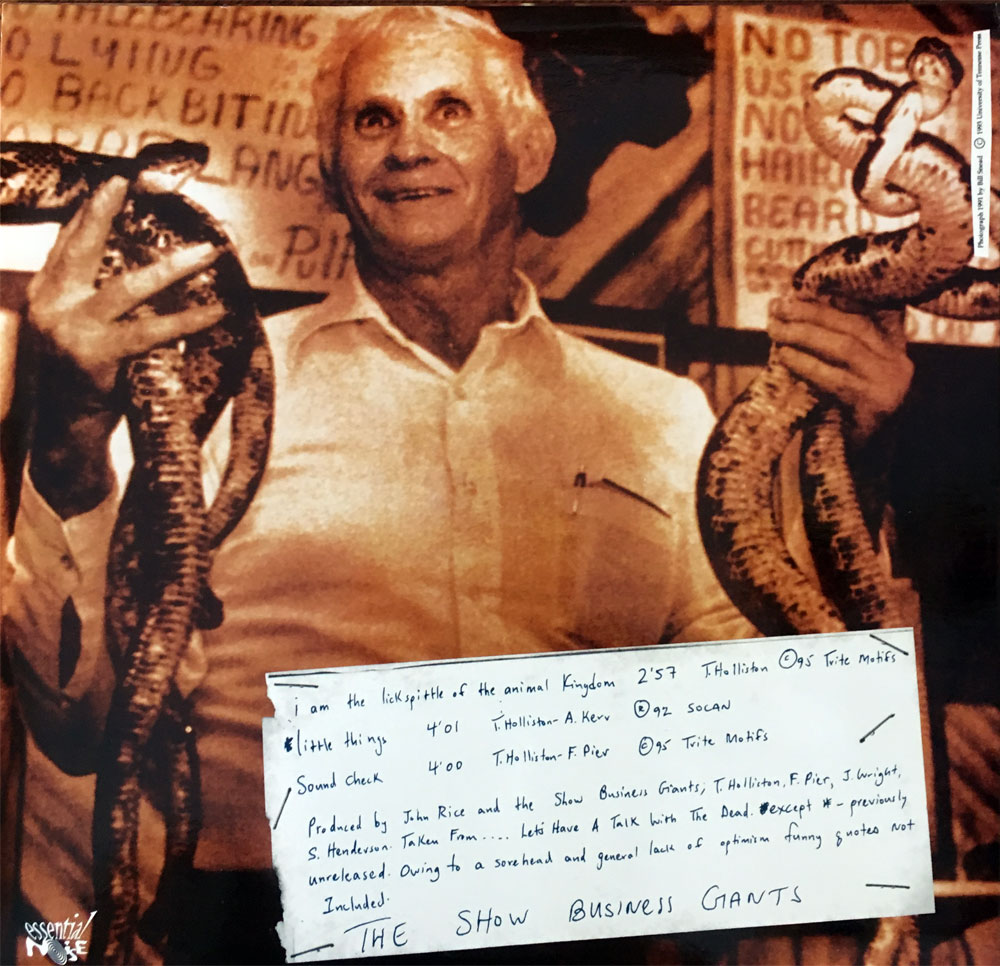 TALEBEARING
O LYING
O BACKBITING
LANG
NO TOB
US
NO
HAIR
BEARD
CUTT
Photograph 1991 by Bill Snead © 1993 University of Tennessee Press
i am the lickspittle of the animal Kingdom 2'57 T.Holliston ©95 Trite Motifs
*little things 4'01 T.Holliston- A. Kerr ®92 SOCAN
Sound check 4'00 T.Holliston- F. Pier ©95 Trite Motifs
Produced by John Rice and the Show Business Giants; T. Holliston, F. Pier, J. Wright,
S. Henderson. Taken From.... Let's Have A Talk With The Dead. except * - previously
unreleased. Owing to a sorehead and general lack of optimism funny quotes not
Included.
THE SHOW BUSINESS GIANTS
essential
NOISE